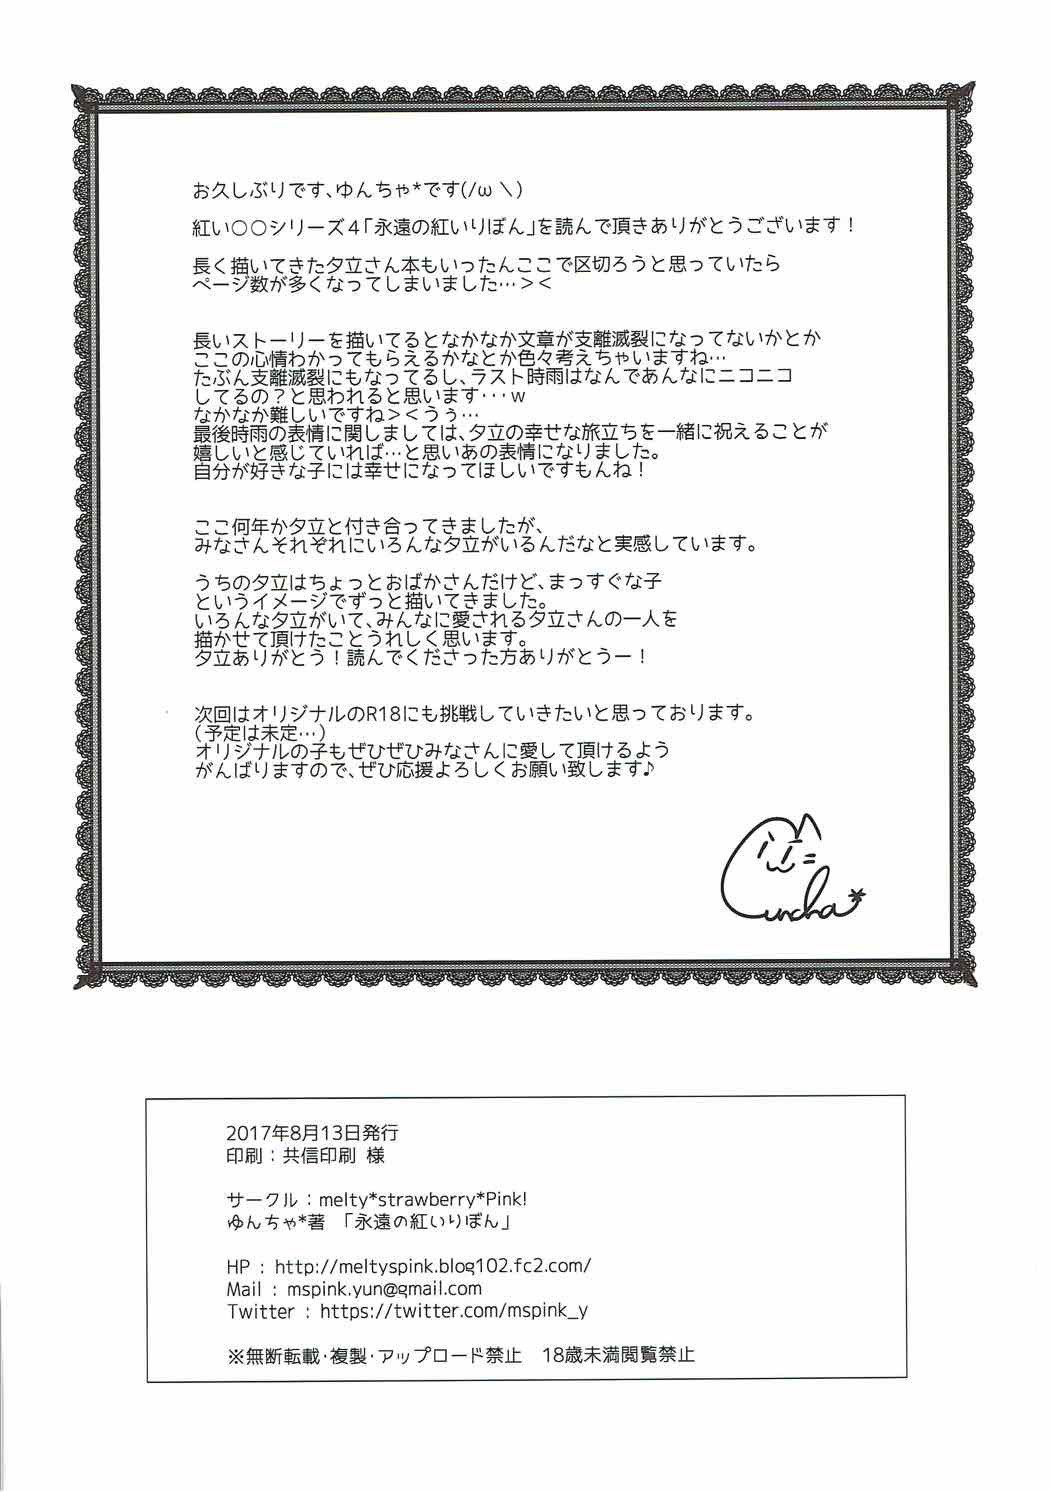 お久しぶりです、ゆんちゃ*です(/ω＼)
紅い○○シリーズ4「永遠の紅いりぼん」を読んで頂きありがとうございます！
長く描いてきた夕立さん本もいったんここで区切ろうと思っていたら
ページ数が多くなってしまいました…＞＜
長いストーリーを描いてるとなかなか文章が支離滅裂になってないかとか
ここの心情わかってもらえるかなとか色々考えちゃいますね…
たぶん支離滅裂にもなってるし、ラスト時雨はなんであんなにニコニコ
してるの？と思われると思います・・・w
なかなか難しいですね＞＜うぅ…
最後時雨の表情に関しましては、夕立の幸せな旅立ちを一緒に祝えることが
嬉しいと感じていれば…と思いあの表情になりました。
自分が好きな子には幸せになってほしいですもんね！
ここ何年か夕立と付き合ってきましたが、
みなさんそれぞれにいろんな夕立がいるんだなと実感しています。
うちの夕立はちょっとおばかさんだけど、まっすぐな子
というイメージでずっと描いてきました。
いろんな夕立がいて、みんなに愛される夕立さんの一人を
描かせて頂けたことうれしく思います。
夕立ありがとう！読んでくださった方ありがとうー！
次回はオリジナルのR18にも挑戦していきたいと思っております。
（予定は未定…）
オリジナルの子もぜひぜひみなさんに愛して頂けるよう
がんばりますので、ぜひ応援よろしくお願い致します♪
uncha*
2017年8月13日発行
印刷：共信印刷 様
サークル：melty*strawberry*Pink!
ゆんちゃ*著 「永遠の紅いりぼん」
HP : http://meltyspink.blog102.fc2.com/
Mail : mspink.yun@gmail.com
Twitter : https://twitter.com/mspink_y
※無断転載・複製・アップロード禁止　18歳未満閲覧禁止